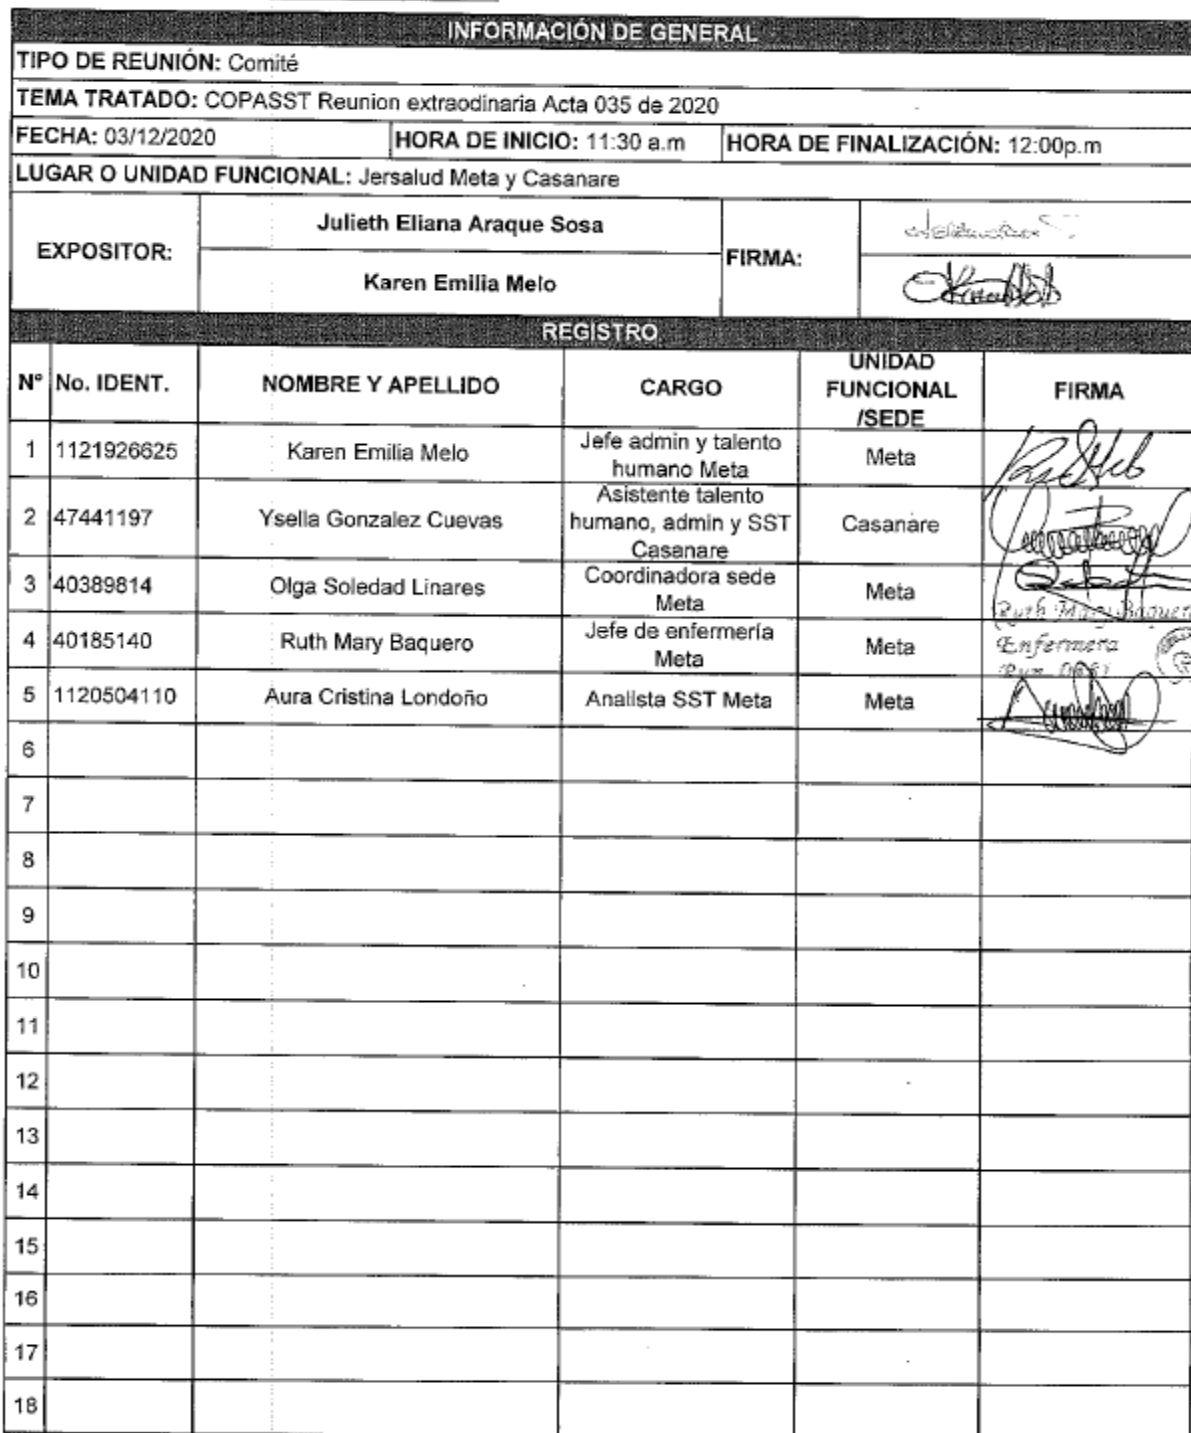 INFORMACIÓN DE GENERAL
TIPO DE REUNIÓN: Comité
TEMA TRATADO: COPASST Reunion extraodinaria Acta 035 de 2020
FECHA: 03/12/2020 HORA DE INICIO: 11:30 a.m HORA DE FINALIZACIÓN: 12:00p.m
LUGAR O UNIDAD FUNCIONAL: Jersalud Meta y Casanare
EXPOSITOR: Julieth Eliana Araque Sosa FIRMA:
Karen Emilia Melo
REGISTRO
N° No. IDENT. NOMBRE Y APELLIDO CARGO UNIDAD FUNCIONAL /SEDE FIRMA
1 1121926625 Karen Emilia Melo Jefe admin y talento humano Meta Meta
2 47441197 Ysella Gonzalez Cuevas Asistente talento humano, admin y SST Casanare Casanare
3 40389814 Olga Soledad Linares Coordinadora sede Meta Meta
Ruth Mary Baquero
4 40185140 Ruth Mary Baquero Jefe de enfermería Meta Meta Enfermera
5 1120504110 Aura Cristina Londoño Analista SST Meta Meta
6
7
8
9
10
11
12
13
14
15
16
17
18